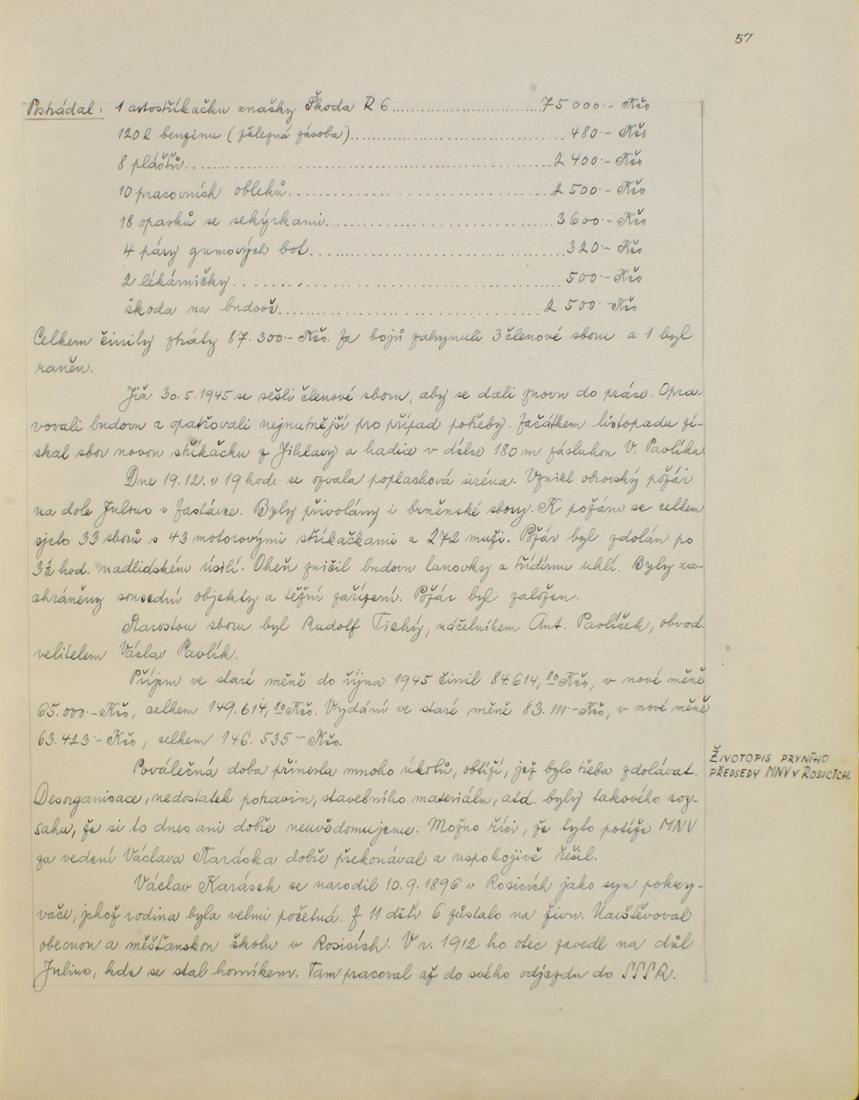 57
Postrádal: 1 autostříkačku značky Škoda R 6 .......... 75 000.- Kčs
120 l benzinu (železná zásoba) .......... 480.- Kčs
8 plášťů .......... 2 400.- Kčs
10 pracovních obleků .......... 2 500.- Kčs
18 opasků se sekyrkami .......... 3 600.- Kčs
4 páry gumových bot .......... 320.- Kčs
2 lékárničky .......... 500.- Kčs
škoda na budově .......... 2 500.- Kčs
Celkem činily ztráty 87.300.- Kčs. Za bojů zahynuli 3 členové sboru a 1 byl
raněn.
Již 30.5.1945 se sešli členové sboru, aby se dali znovu do práce. Opra-
vovali budovu a opatřovali nejnutnější pro případ potřeby. Začátkem listopadu zí-
skal sbor novou stříkačku z Jihlavy a hadice v délce 180 m zásluhou V. Pavlíka.
Dne 19.12. v 19 hod. se ozvala poplachová siréna. Vznikl obrovský požár
na dole Julius v Zastávce. Byly přivolány i brněnské sbory. K požáru se celkem
sjelo 33 sborů s 43 motorovými stříkačkami a 272 muži. Požár byl zdolán po
3½ hod. nadlidském úsilí. Oheň zničil budovu lanovky a třídírnu uhlí. Byly za-
chráněny sousední objekty a těžní zařízení. Požár byl založen.
Starostou sboru byl Rudolf Tichý, náčelníkem Ant. Pavlíček, obvod.
velitelem Václav Pavlík.
Příjem ve staré měně do října 1945 činil 84.614,80 Kčs, v nové měně
65.000.- Kčs, celkem 149.614,80 Kčs. Vydání ve staré měně 83.111.- Kčs, v nové měně
63.423.- Kčs, celkem 146.535.- Kčs.
ŽIVOTOPIS PRVNÍHO
PŘEDSEDY MNV V ROSICÍCH.
Poválečná doba přinesla mnoho úkolů, obtíží, jež bylo třeba zdolávat.
Desorganisace, nedostatek potravin, stavebního materiálu, atd. byly takového roz-
sahu, že si to dnes ani dobře neuvědomujeme. Možno říci, že tyto potíže MNV
za vedení Václava Karáska dobře překonával a uspokojivě řešil.
Václav Karásek se narodil 10.9.1896 v Rosicích jako syn pokrý-
vače, jehož rodina byla velmi početná. Z 11 dětí 6 zůstalo na živu. Navštěvoval
obecnou a měšťanskou školu v Rosicích. V r. 1912 ho otec zavedl na důl
Julius, kde se stal horníkem. Tam pracoval až do svého odjezdu do SSSR.